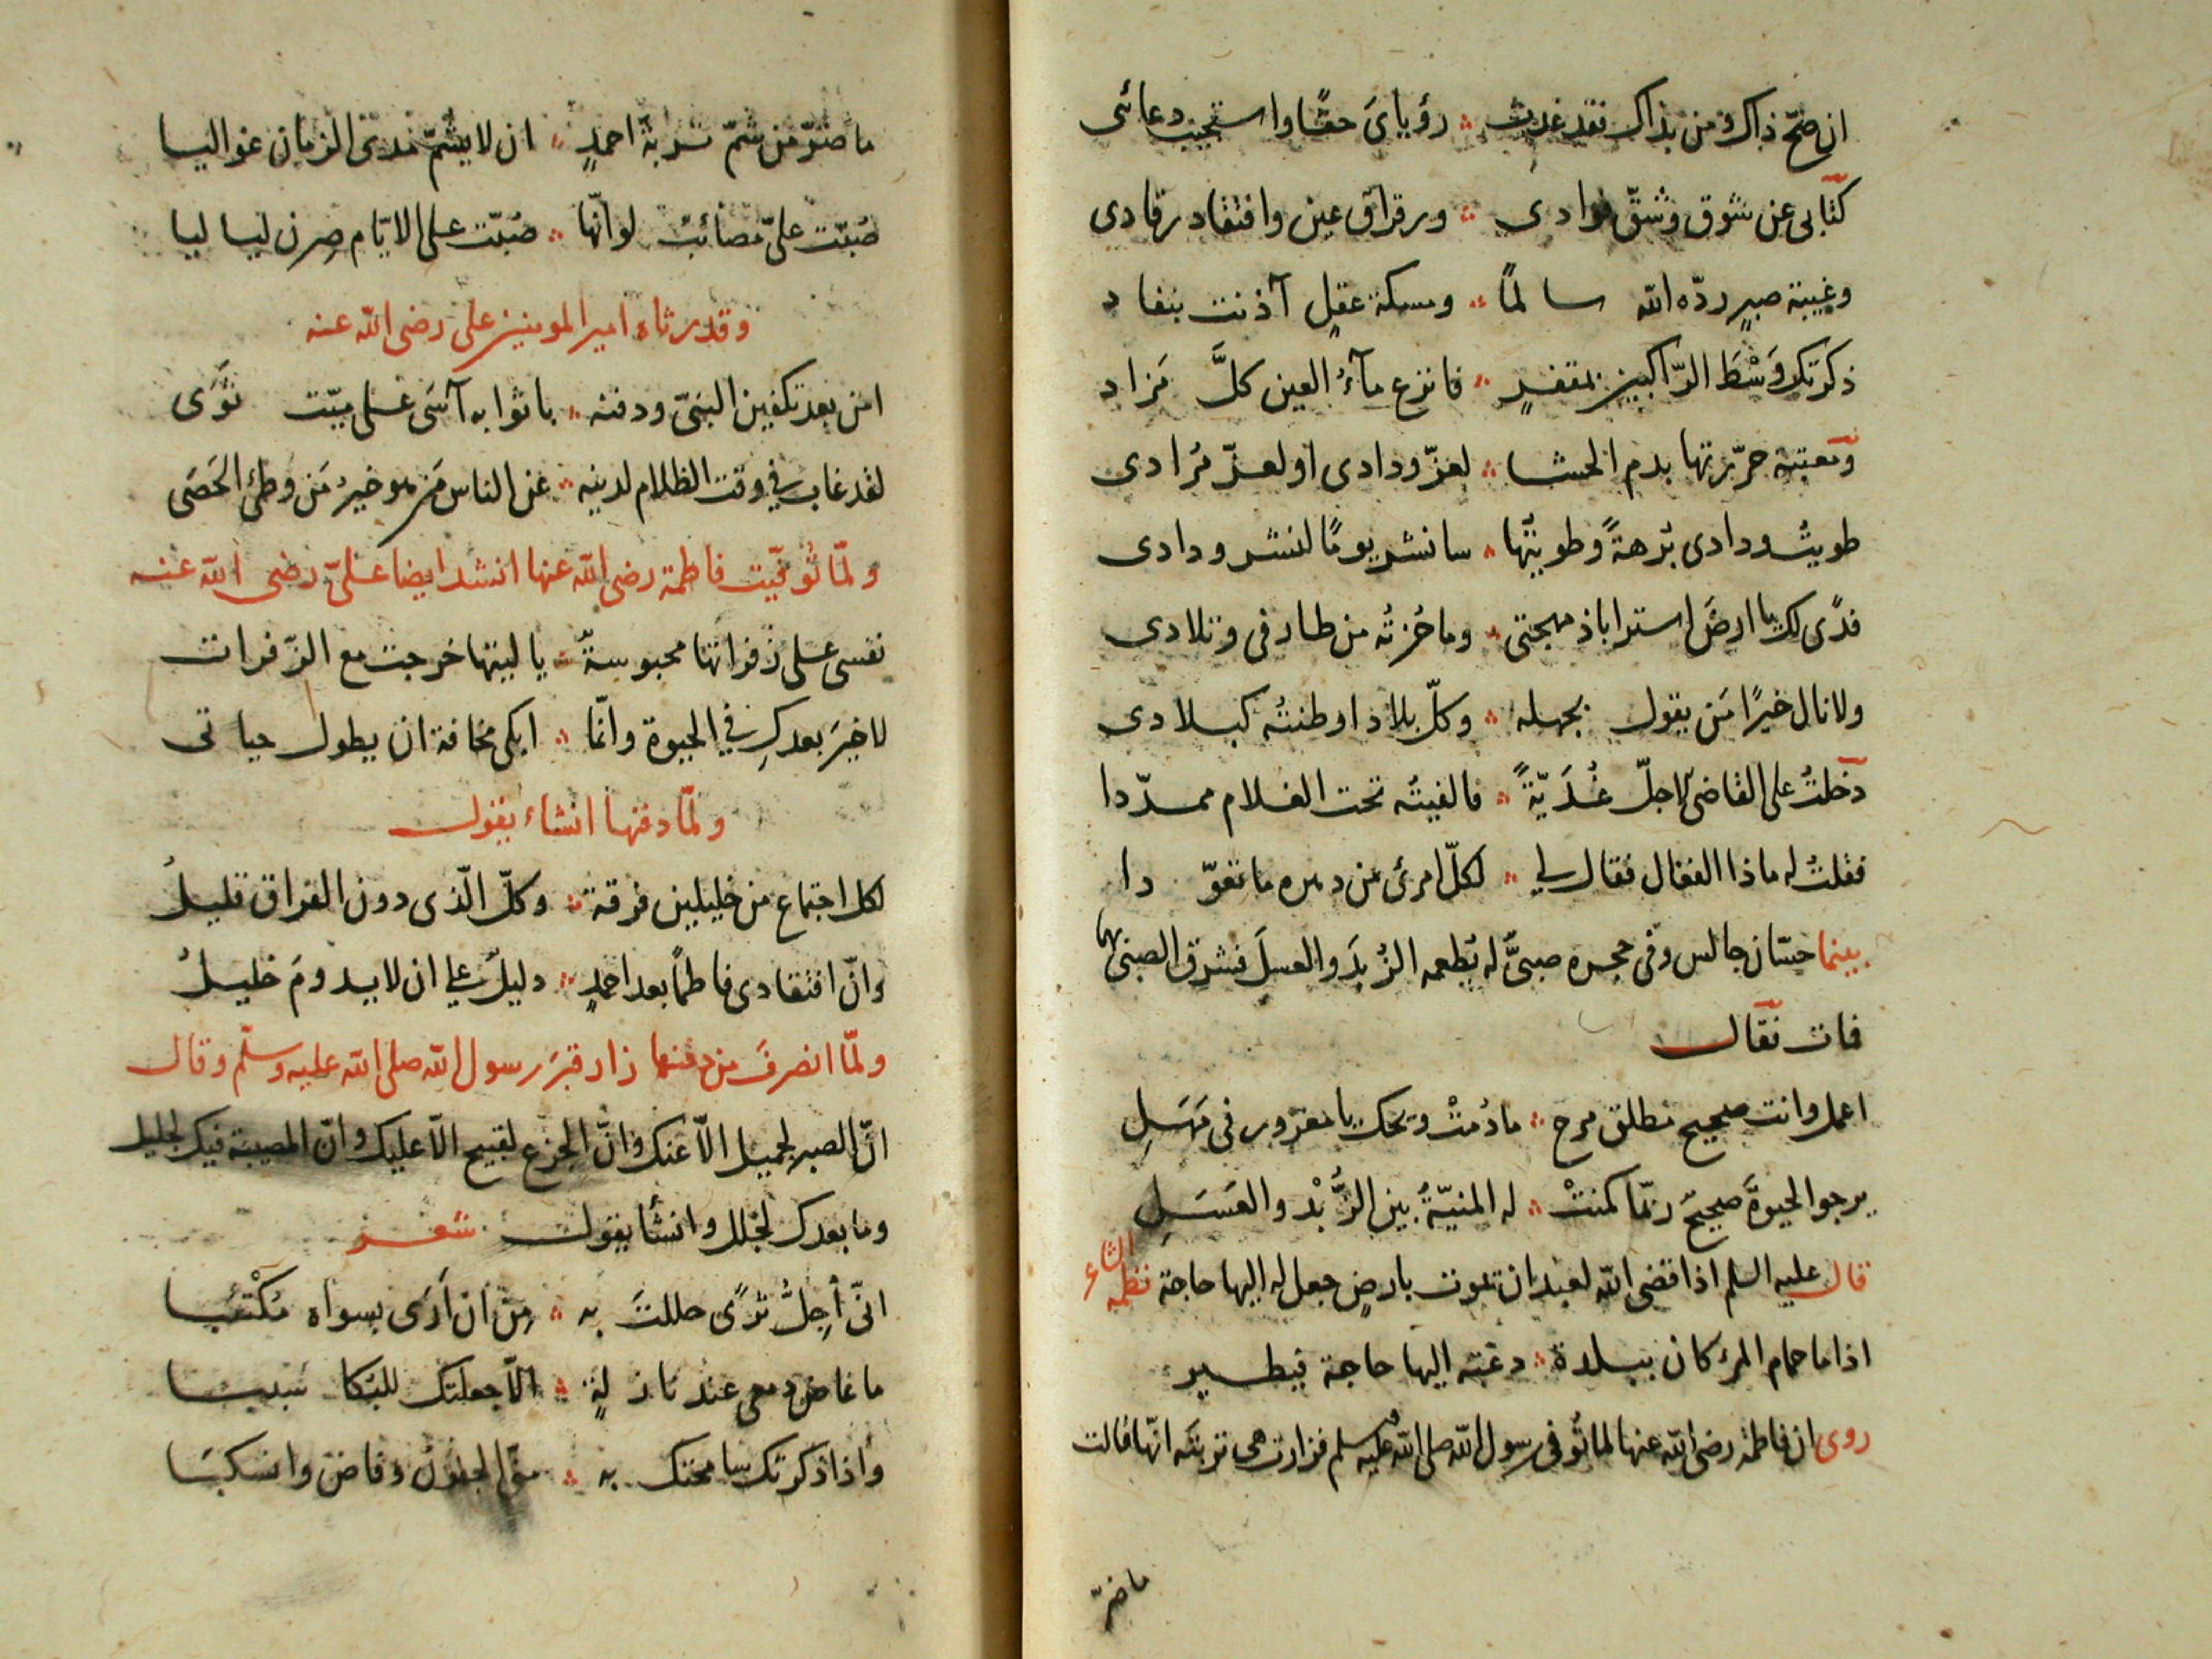 ان صحّ ذاك ومن بذاك فقد غدت ؞ رؤيايَ حقًا واستجيب دعائي
كتابى عن شوق وشقّ فوادى ؞ ورقراق عين وافتقاد رقادى
وغيبة صبرٍ ردّه الله سالمًا ؞ ومسكة عقلٍ آذنت بنفاد
ذكرتك وَسْطَ الرّاكبين بمقفرٍ ؞ فانزع مآءُ العين كلَّ مَزاد
ومعتبة حرّرتها بدم الحشا ؞ لعزّ ودادى او لعزّ مُرادى
طويتُ ودادى بُرهةً وطويتُها ؞ سانشر يومًا لنشر ودادى
فدًى لك يا ارضَ استراباذ مهجتى ؞ وما حُزتُه من طارفى وتلادى
ولا نال خيرًا مَن يقول بجهله ؞ وكلّ بلاد اوطنتُه كبلادى
دخلتُ على القاضى الاجلّ غُدَيّةً ؞ فالفيتُه تحت الغلام ممدّدا
فقلتُ له ماذا الفعال فقال لي ؞ لكلّ امرئ من دهره ما تعوّدا
بينما حسّان جالس وفى حجره صبىٌّ له يُطعمه الزُبدَ والعسلَ فشرق الصبىّ بهما
فمات فقال
اعمل وانت صحيح مطلق مرح ؞ ما دُمتْ ويحك يا مغرور فى مَهَلِ
يرجو الحيوةَ صحيحٌ ربّما كمنتْ ؞ له المنيّةُ بين الزُّبْد والعَسَلِ
قال عليه السلم اذا قضى الله لعبد ان يموت بارضٍ جعل له اليها حاجة نظمه الشاعر
اذا ما حمام المرء كان ببلدة ؞ دعته اليها حاجة فيطير
روى ان فاطمة رضى الله عنها لما تُوفى رسول الله صلى الله عليه وسلم فزارت هى تربتَه انّها قالت
ما ضرّ
ما ضرّ من شمّ تربةَ احمدٍ ؞ ان لا يشمّ مدى الزمان غواليا
صُبّت علىّ مصائبٌ لو انّها ؞ صُبّت على الايّام صِرن لياليا
وقد رثاه امير المومنين على رضى الله عنه
امن بعد تكفين النبىّ ودفنه ؞ باثوابه آسَى على ميّت ثَوَى
لقد غاب في وقت الظلام لدينه ؞ عن الناس مَن هو خيرُ مَن وطئ الحَصَى
ولمّا تُوفيّت فاطمة رضى الله عنها انشد ايضا علىّ رضى الله عنه
نفسى على زفراتها محبوسةٌ ؞ يا ليتها خرجت مع الزّفرات
لا خيرَ بعدكِ في الحيوة وانّما ؞ ابكى مخافة ان يطول حياتى
ولمّا دفنها انشاء يقول
لكل اجتماع من خليلين فرقة ؞ وكلّ الّذى دون الفراق قليلُ
وانّ افتقادى فاطمًا بعد احمدٍ ؞ دليلٌ علي ان لا يدومَ خليلُ
ولمّا انصرفَ من دفنها زار قبرَ رسول الله صلى الله عليه وسلّم وقال
انّ الصبر لجميل الّا عنك وانَّ الجزع لقبيح الّا عليك وانّ المصيبة فيك لجليل
وما بعدك لجلل وانشأ يقول شعر
انّى أُجِلُّ ثرًى حللتَ به ؞ مِن ان اَرَى بسواه مُكْتئبا
ما غاض دمعى عند نازلةٍ ؞ الّا جعلتك للبكا سببا
واذا ذكرتك سامحتك به ؞ منّى الجفونُ وفاض وانسكبَا